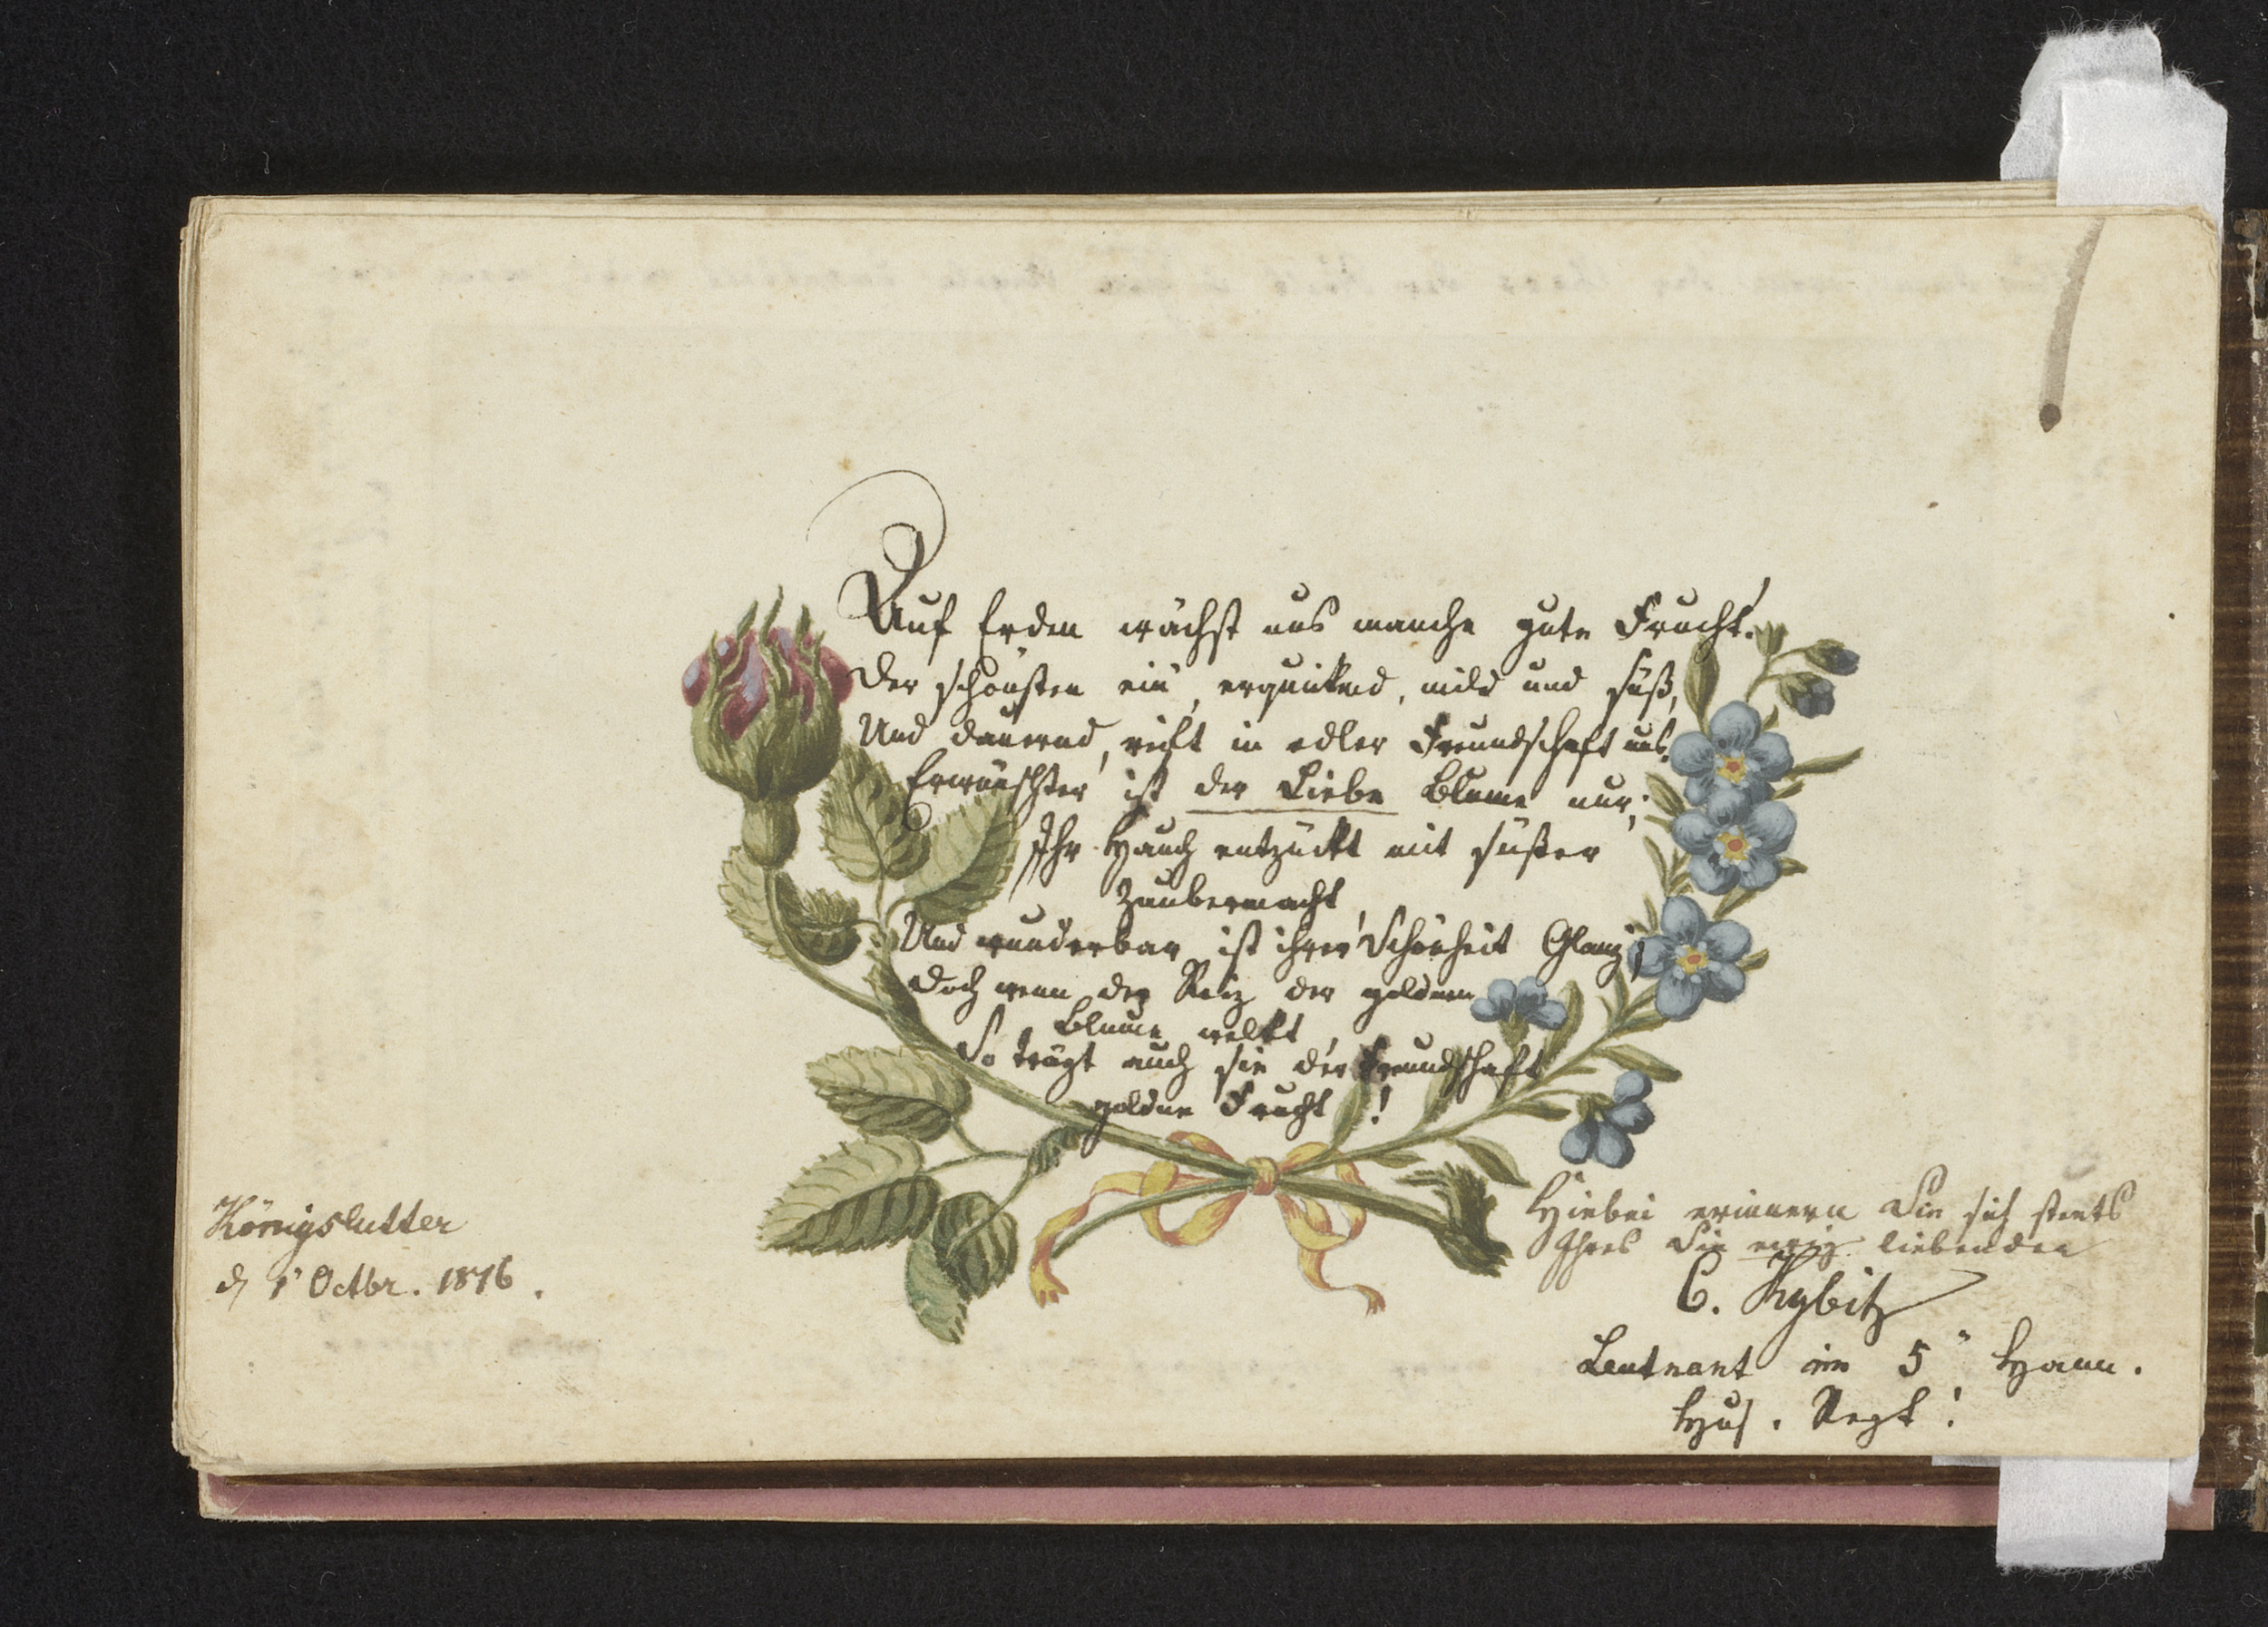 Auf Erden wächst uns manche gute Frucht.
Der schönsten ein, erquikend, mild und süß,
Und dauernd, reift in edler Freundschaft uns.
Erwünschter ist der Liebe Blume nur;
Ihr Hauch entzückt mit süßer
Zaubermacht,
Und wunderbar ist ihrer Schönheit Glanz;
Doch wenn der Reiz der goldnen
Blume welkt,
So trägt auch sie der Freundschaft
goldne Frucht!
Hiebei erinnern Sie sich steets
Ihres Sie ewig liebenden
C. Kybitz
Leutnant im 5" Hann.
Hus. Regt!
Königslutter
d 1' Octbr. 1816.